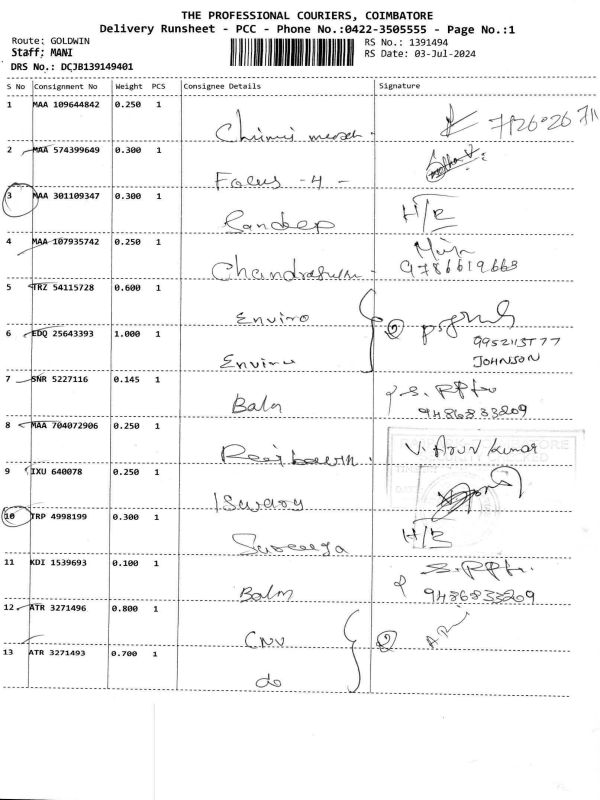 THE PROFESSIONAL COURIERS, COIMBATORE
Delivery Runsheet - PCC - Phone No.:0422-3505555 - Page No.:1
Route: GOLDWIN
RS No.: 1391494
Staff: MANI
RS Date: 03-Jul-2024
DRS No.: DCJB139149401
S No Consignment No Weight PCS Consignee Details Signature
1 MAA 109644842 0.250 1
2 MAA 574399649 0.300 1
Focus -4-
3 MAA 301109347 0.300 1
Randeep H/R
4 MAA 107935742 0.250 1
9786619663
5 TRZ 54115728 0.600 1
Enviro
2
6 EDQ 25643393 1.000 1
9952113577
JOHNSON
Enviro
7 SNR 5227116 0.145 1
Balm 9486833209
8 MAA 704072906 0.250 1
V. Arun kumar
9 IXU 640078 0.250 1
Iswary
10 TRP 4998199 0.300 1
H/R
11 KDI 1539693 0.100 1
Balm 9486833209
12 ATR 3271496 0.800 1
CNV 2
13 ATR 3271493 0.700 1
do